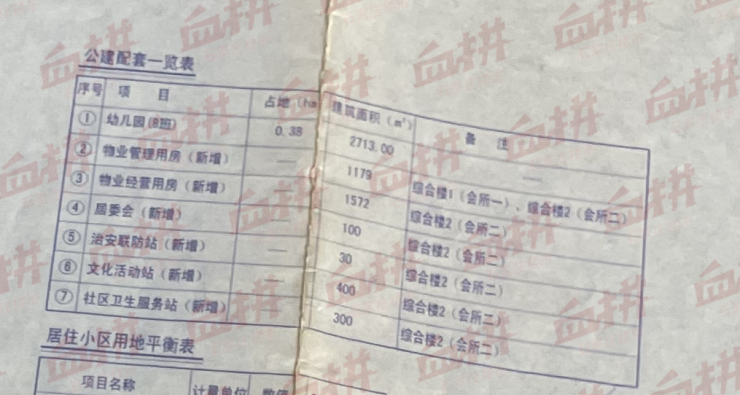 公建配套一览表
序号 项 目 占地（hm 建筑面积（m²） 备 注
① 幼儿园(8班) 0.38 2713.00 ——
② 物业管理用房（新增） —— 1179 综合楼1（会所一）、综合楼2（会所二）
③ 物业经营用房（新增） —— 1572 综合楼2（会所二）
④ 居委会（新增） —— 100 综合楼2（会所二）
⑤ 治安联防站（新增） —— 30 综合楼2（会所二）
⑥ 文化活动站（新增） —— 400 综合楼2（会所二）
⑦ 社区卫生服务站（新增） —— 300 综合楼2（会所二）
居住小区用地平衡表
项目名称 计量单位 数值
血拼